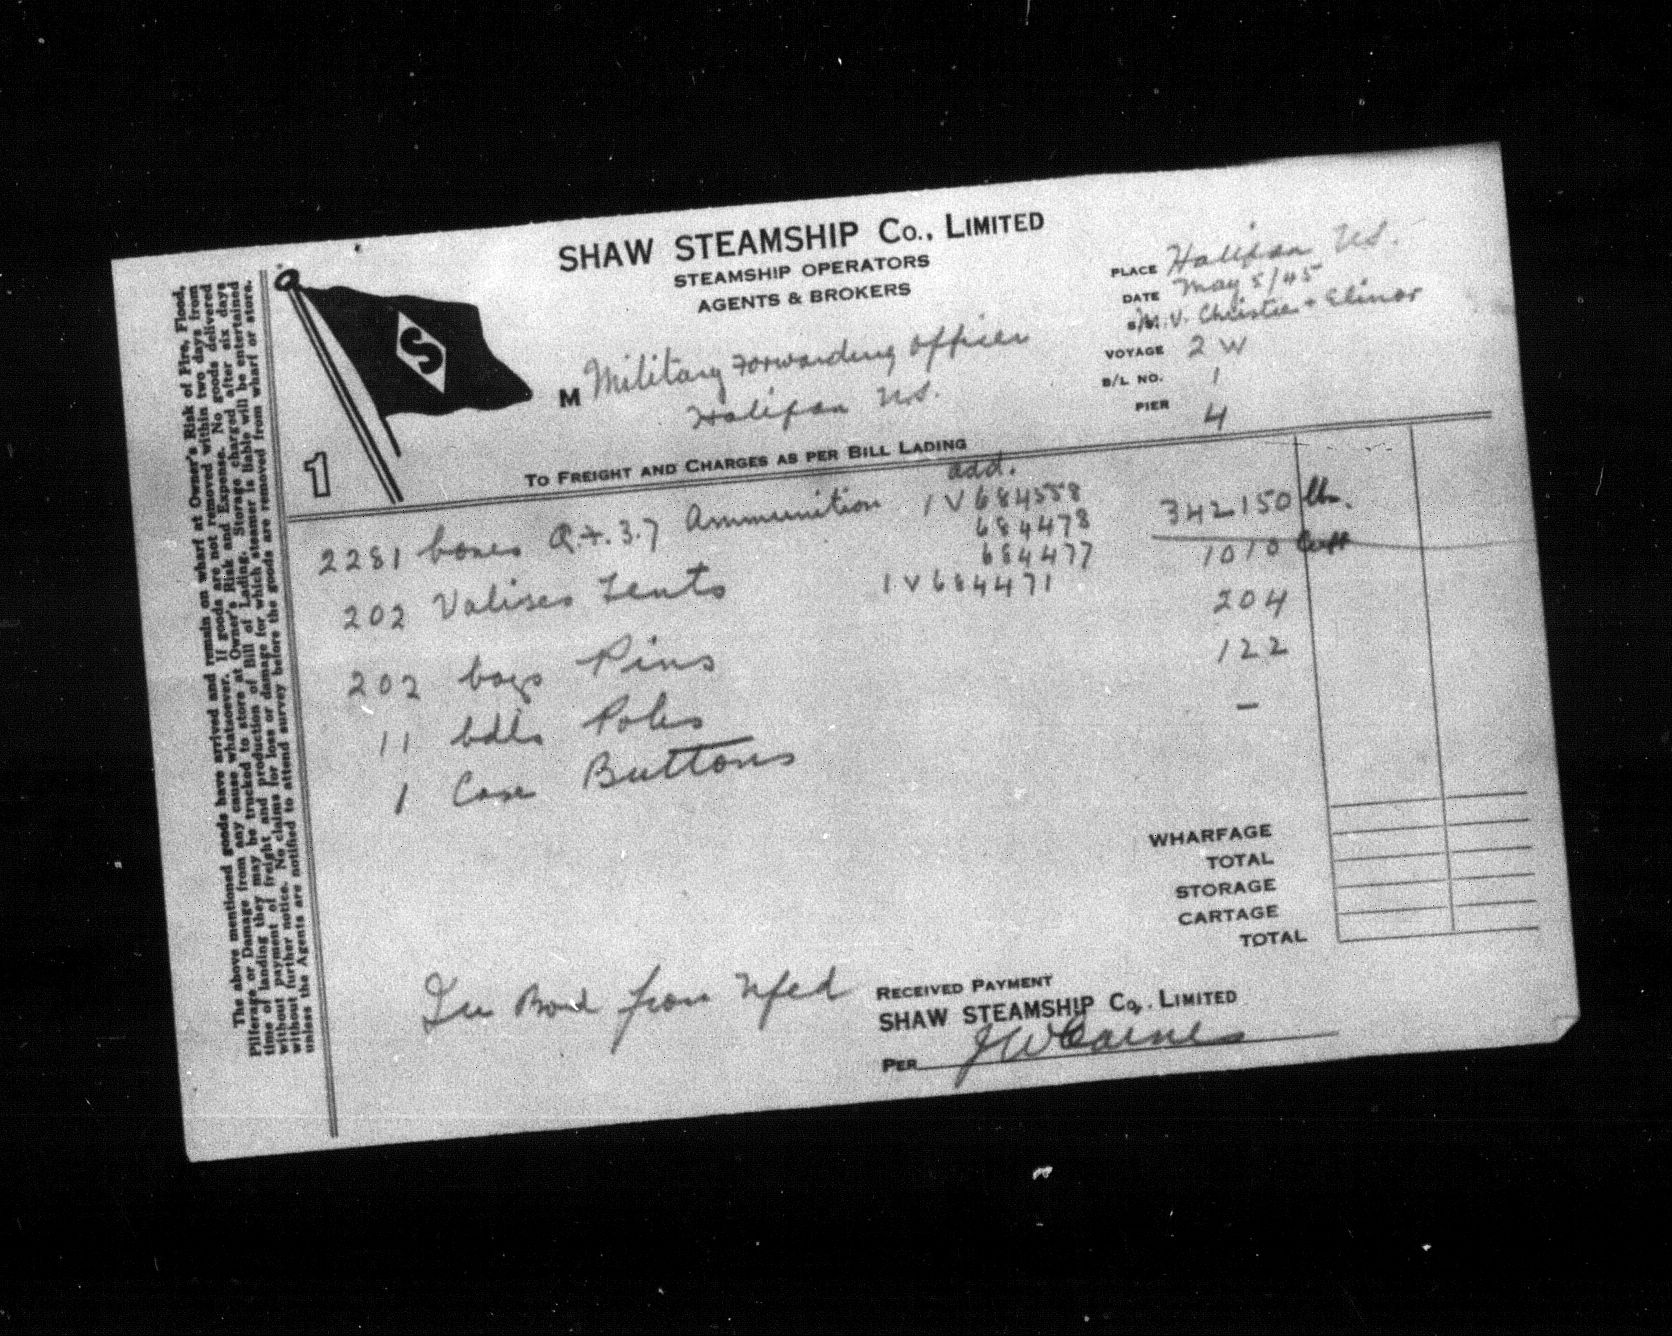 SHAW STEAMSHIP Co., LIMITED
STEAMSHIP OPERATORS
AGENTS & BROKERS
PLACE Halifax N.S.
DATE May 5/45
S/S M.V. Christie & Elinor
VOYAGE 2 W
B/L NO. 1
PIER 4
S
1
M Military Forwarding Officer
Halifax N.S.
TO FREIGHT AND CHARGES AS PER BILL LADING
add.
2281 boxes Q.F. 3.7 Ammunition 1 V 684558 342150 lbs.
684478
684477 1010 Cuft
202 Valises Tents 1 V 684471 204
202 bags Pins 122
11 bdls Poles –
1 Case Buttons
WHARFAGE
TOTAL
STORAGE
CARTAGE
TOTAL
In Bond from Nfld
RECEIVED PAYMENT
SHAW STEAMSHIP Co., LIMITED
PER J W Carnes
The above mentioned goods have arrived and remain on wharf at Owner's Risk of Fire, Flood,
Pilferage or Damage from any cause whatsoever. If goods are not removed within two days from
time of landing they may be trucked to store at Owner's Risk and Expense. No goods delivered
without payment of freight and production of Bill of Lading. Storage charged after six days
without further notice. No claims for loss or damage for which steamer is liable will be entertained
unless the Agents are notified to attend survey before the goods are removed from wharf or store.